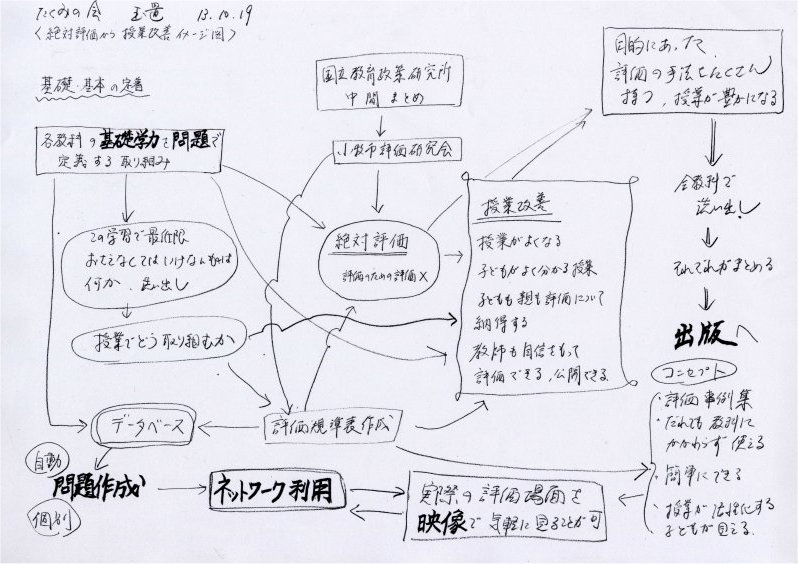 たくみの会 玉置 13.10.19
〈絶対評価から授業改善イメージ図〉
基礎・基本の定着
国立教育政策研究所
中間まとめ
目的にあった
評価の手法をたくさん
持つ、授業が豊かになる
各教科の基礎学力を問題で
定義する取り組み
小牧市評価研究会
全教科で
洗い出し
それぞれがまとめる
出版へ
この学習で最低限
おさえなくてはいけないものは
何か、洗い出し
絶対評価
評価のための評価×
授業改善
授業がよくなる
子どもがよく分かる授業
子どもも親も評価について
納得する
教師も自信をもって
評価できる、公開できる
授業でどう取り組むか
コンセプト
・評価事例集
・だれでも教科に
かかわらず使える
・簡単にできる
・授業が活性化する
子どもが見える
データベース
評価規準表作成
自動
問題作成が
個別
ネットワーク利用
実際の評価場面を
映像で気軽に見ることが可